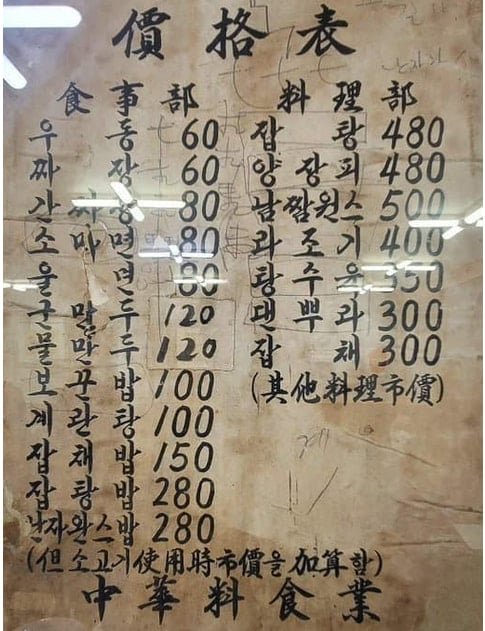 價格表
食事部
우동 60
짜장 60
간짜장 80
소마면 80
울면 80
군만두 120
물만두 120
보끈밥 100
계란탕 100
잡채밥 150
잡탕밥 280
난자완스밥 280
(但 소고기使用時市價을 加算함)
料理部
잡탕 480
양장피 480
500
라조기 400
탕수육 350
덴뿌라 300
잡채 300
(其他料理市價)
中華料食業